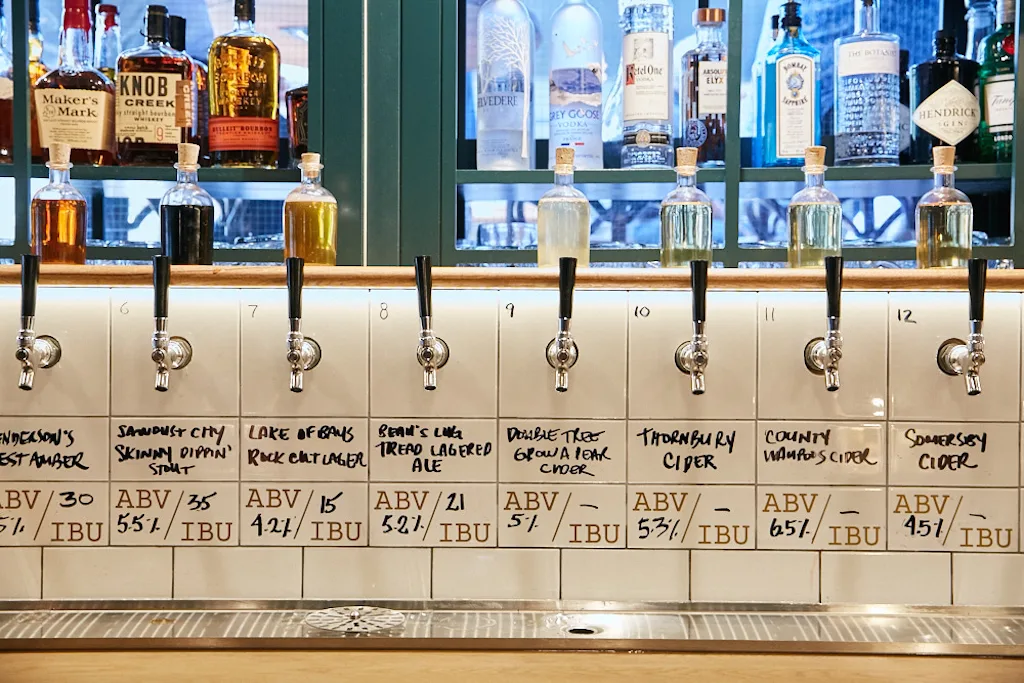 Maker's
Mark
KNOB
CREEK
WHISKEY
9
BULLEIT BOURBON
BELVEDERE
GREY GOOSE
VODKA
Ketel One
VODKA
ABSOLUT
ELYX
BOMBAY
SAPPHIRE
THE BOTANIST
HENDRICK'S
GIN
6
7
8
9
10
11
12
ENDERSON'S
EST AMBER
SAWDUST CITY
SKINNY DIPPIN'
STOUT
LAKE OF BAYS
ROCK CUT LAGER
BEAU'S LUG
TREAD LAGERED
ALE
DOUBLE TREE
GROW A PEAR
CIDER
THORNBURY
CIDER
COUNTY
WAUPOOS CIDER
SOMERSBY
CIDER
ABV / 30
5% IBU
ABV / 35
5.5% IBU
ABV / 15
4.2% IBU
ABV / 21
5.2% IBU
ABV / –
5% IBU
ABV / –
5.3% IBU
ABV / –
6.5% IBU
ABV / –
4.5% IBU